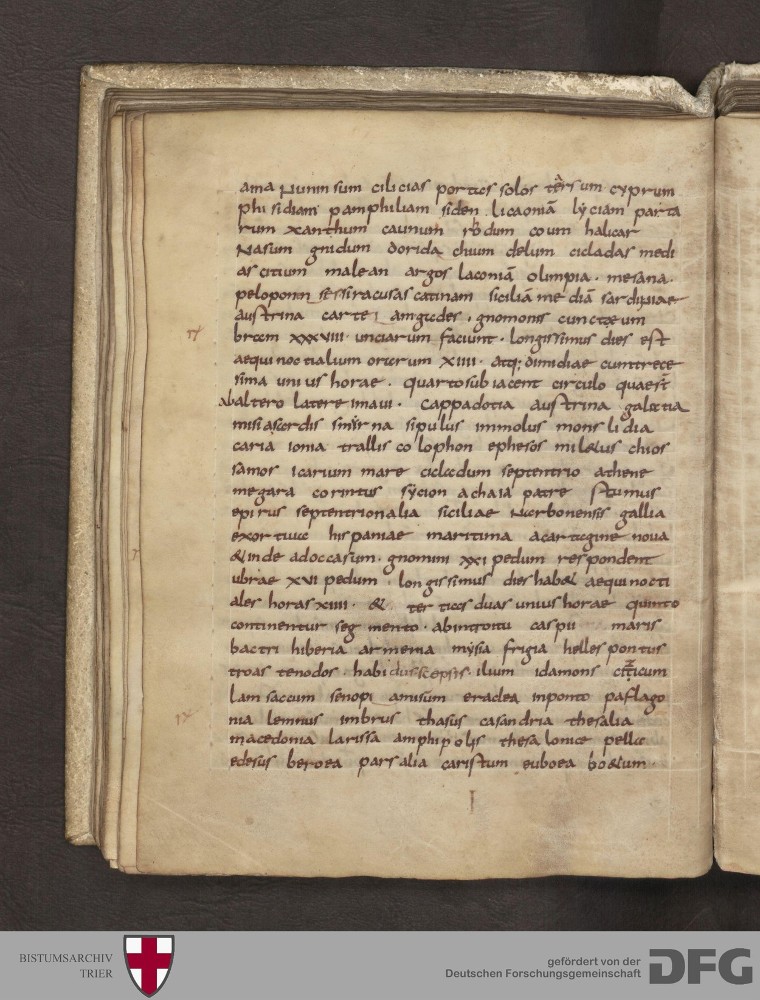 ama Numn sum cilicias portus solos tersum cyprum
phisidiam pamphiliam siden licaoniā lyciam parta
rum xanthum caunum rodum coum halicar
Nasum gnidum dorida chium delum cicladas medi
as citium malean argos laconiā olimpia · mesana ·
peloponn siracusas catinam siciliā me diā sardiniae
austrina carte amgades · gnomonis
brem xxxviii · unciarum faciunt · longissimus dies est
aequinoctialium orarum xiiii · atq; dimidiae cumtrece
sima unius horae · quarto subiacent circulo quaest
abaltero latere imaui · cappadotia austrina galatia
misia sardis smirna sipulus immolus mons lidia
caria ionia trallis colophon ephesos miletus chios
samos icarium mare cicladum septentrio athene
megara corintus sycion achaia patre stumus
epirus septentrionalia siciliae Narbonensis gallia
exortiua hispaniae maritima acartagine noua
& inde adoccasum · gnomini xxi pedum respondent
ubrae xvi pedum · longissimus dies habet aequinocti
ales horas xiiii · & tertias duas unius horae quinto
continentur segmento · abintroitu caspii maris
bactri hiberia armenia mysia frigia hellespontus
troas tenodos · habidus scepsis · ilium idamons
Lamsaccum senopi amisum eraclea inponto paflago
nia lemnus imbrus thasus casandria thesalia
macedonia larissa amphipolis thesalonice pella
edesus beroea parsalia caristum euboea boetum ·
I
BISTUMSARCHIV
TRIER
gefördert von der
Deutschen Forschungsgemeinschaft
DFG